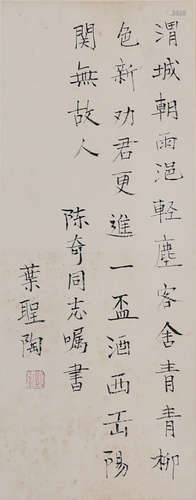 渭城朝雨浥軽塵客舍青青柳
色新劝君更進一盃酒西岀陽
関無故人
陈奇同志嘱書
葉聖陶